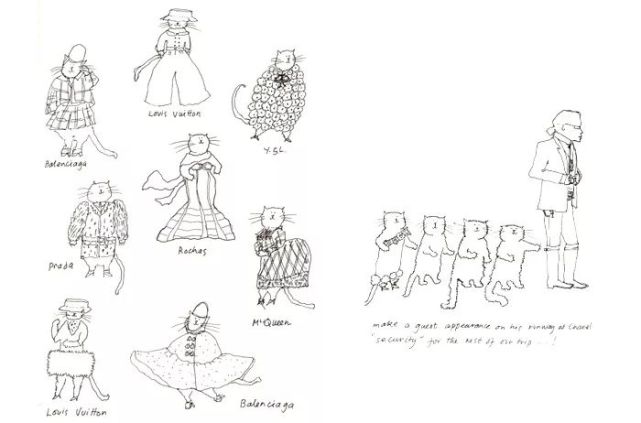 Louis Vuitton
Balenciaga
Y.S.L.
Prada
Rochas
McQueen
Louis Vuitton
Balenciaga
make a guest appearance on his runway at Chanel
"security" for the rest of our trip ...!